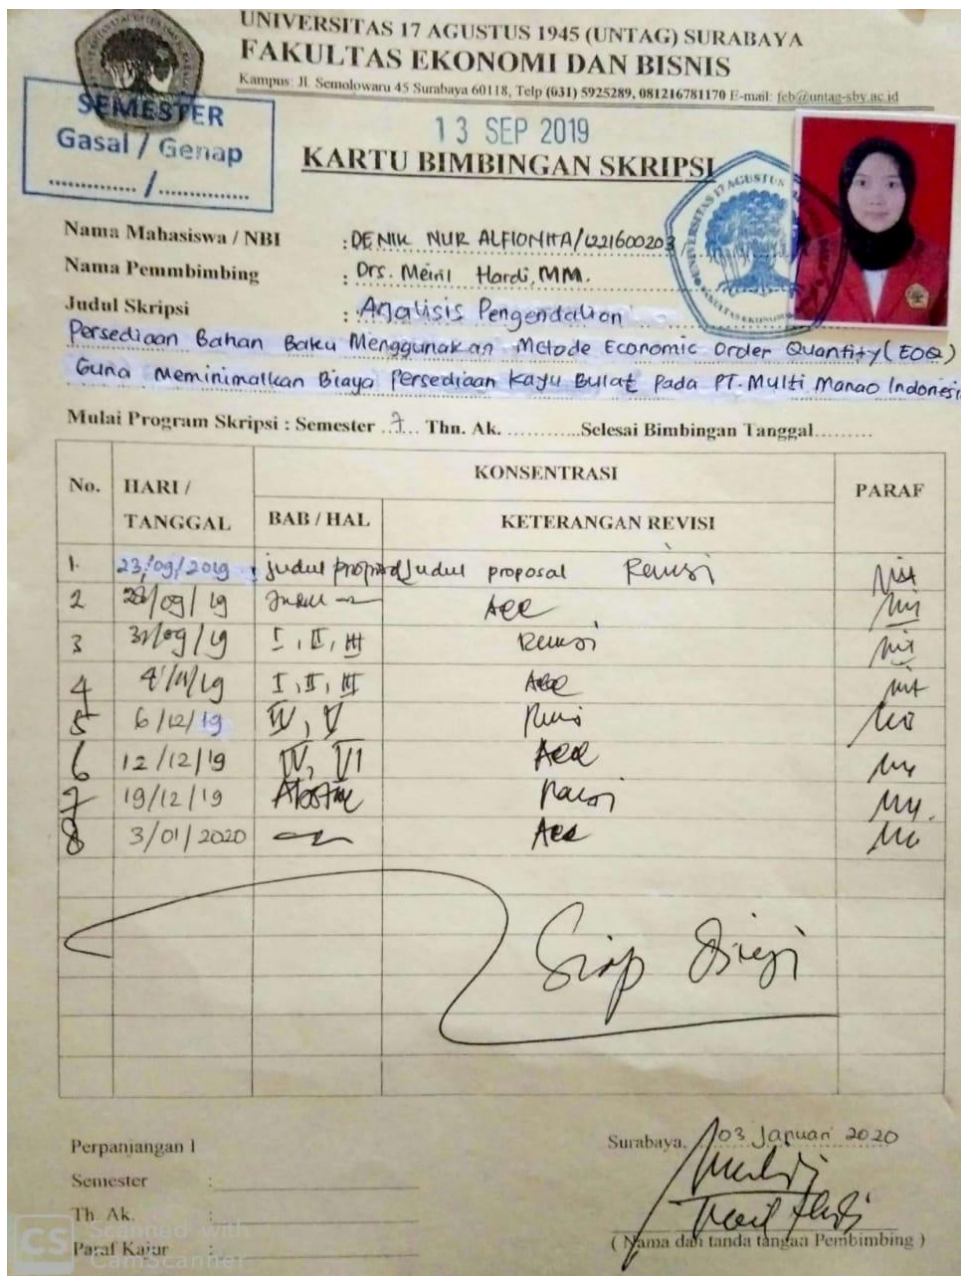 UNIVERSITAS 17 AGUSTUS 1945 (UNTAG) SURABAYA
FAKULTAS EKONOMI DAN BISNIS
Kampus: Jl. Semolowaru 45 Surabaya 60118, Telp (031) 5925289, 081216781170 E-mail: feb@untag-sby.ac.id
SEMESTER
Gasal / Genap
............. /..............
13 SEP 2019
KARTU BIMBINGAN SKRIPSI
Nama Mahasiswa / NBI : DENIK NUR ALFIONITA/1221600203
Nama Pemmbimbing : Drs. Meiril Hardi, MM.
Judul Skripsi : Analisis Pengendalian
Persediaan Bahan Baku Menggunakan Metode Economic Order Quantity (EOQ)
Guna Meminimalkan Biaya Persediaan Kayu Bulat Pada PT. Multi Manao Indonesi
Mulai Program Skripsi : Semester ..7... Thn. Ak. ............Selesai Bimbingan Tanggal.........
No. HARI / TANGGAL KONSENTRASI PARAF
BAB / HAL KETERANGAN REVISI
1. 23/09/2019 judul proposal judul proposal Revisi
2 28/09/19 Judul Acc
3 /09/19 I, II, III Revisi
4 4/11/19 I, II, III Acc
5 6/12/19 IV, V Revisi
6 12/12/19 IV, VI Acc
7 19/12/19 Revisi
8 3/01/2020 Acc
Siap Diuji
Perpanjangan 1
Semester :
Th. Ak. :
Paraf Kajur :
Surabaya, 03 Januari 2020
( Nama dan tanda tangan Pembimbing )
CS Scanned with
CamScanner